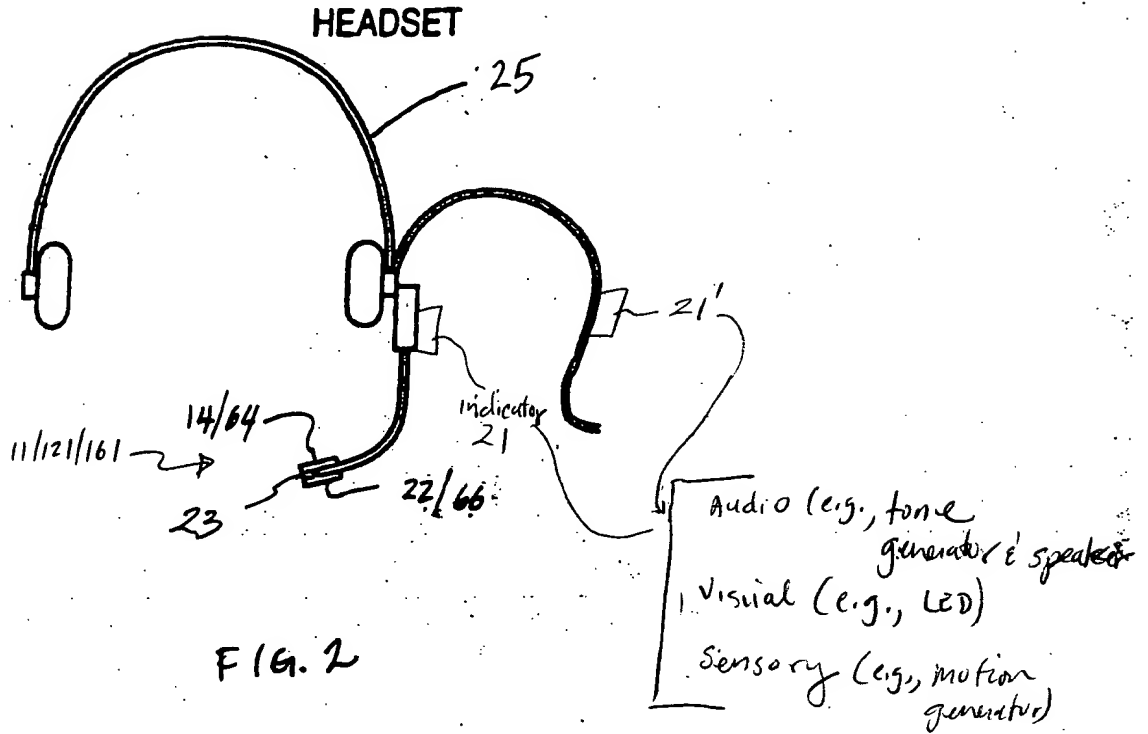 HEADSET
25
21'
14/64
indicator
21
11/121/161
22/66
23
Audio (e.g., tone
generator & speaker
Visual (e.g., LED)
Sensory (e.g., motion
generator)
FIG. 2